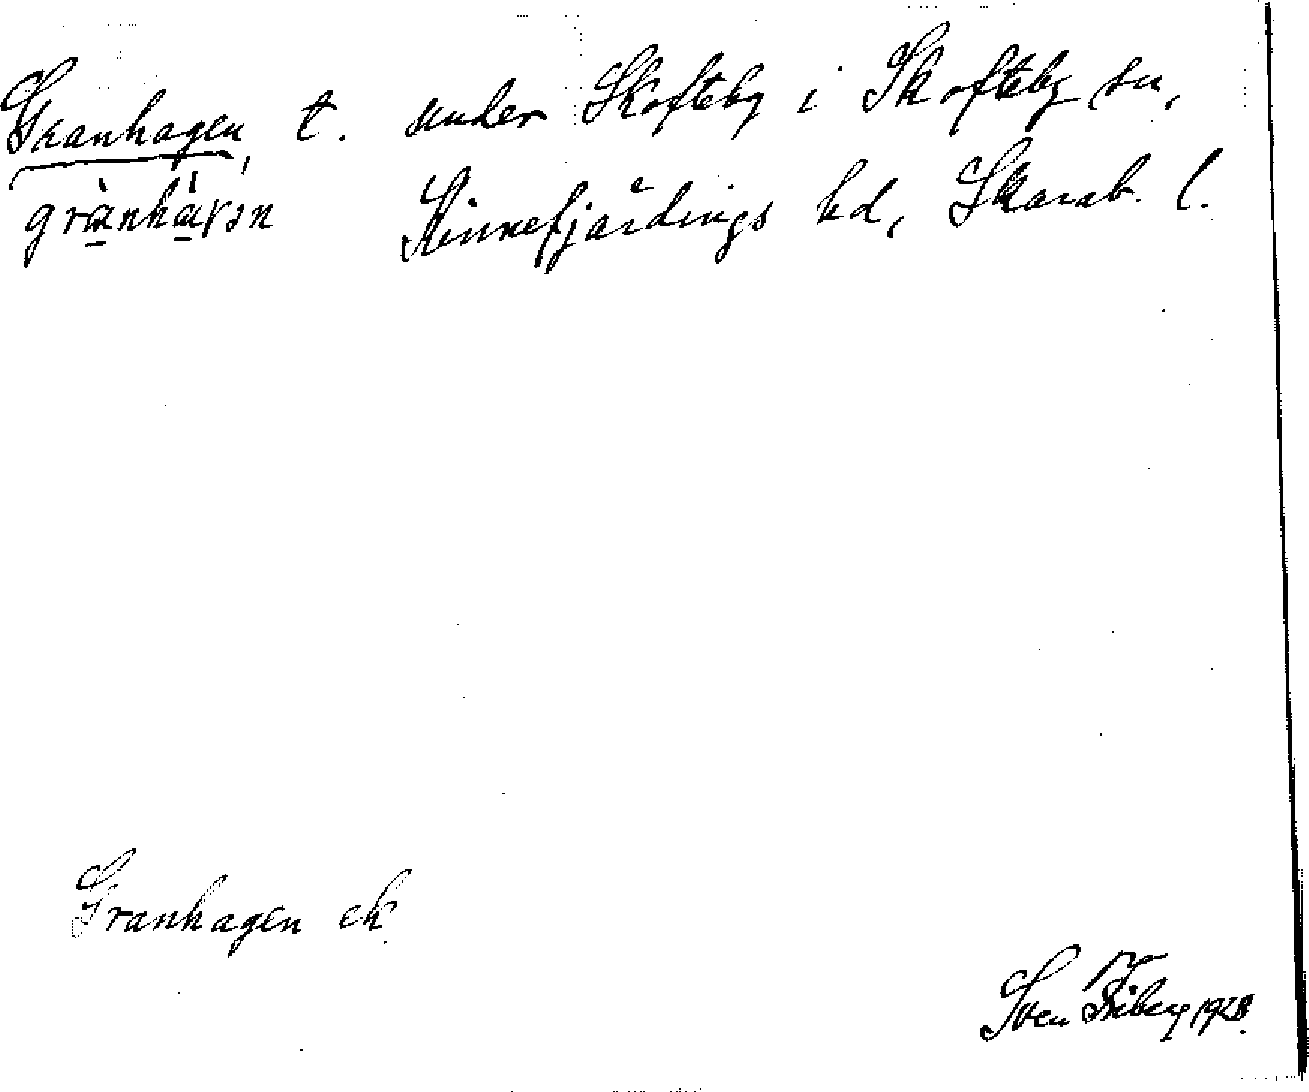 Granhagen, t. under Skofteby i Skofteby sn,
grànhàvən Kinnefjärdings hd, Skarab. l.
Granhagen ek.
Sven Fiberg 1928.